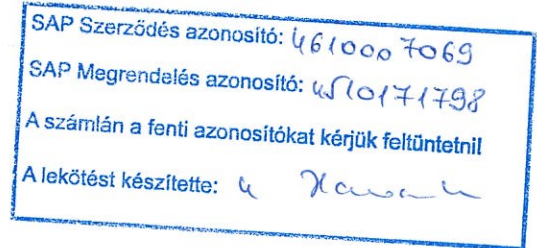 SAP Szerződés azonosító: 4610007069
SAP Megrendelés azonosító: 4510171798
A számlán a fenti azonosítókat kérjük feltüntetni!
A lekötést készítette: